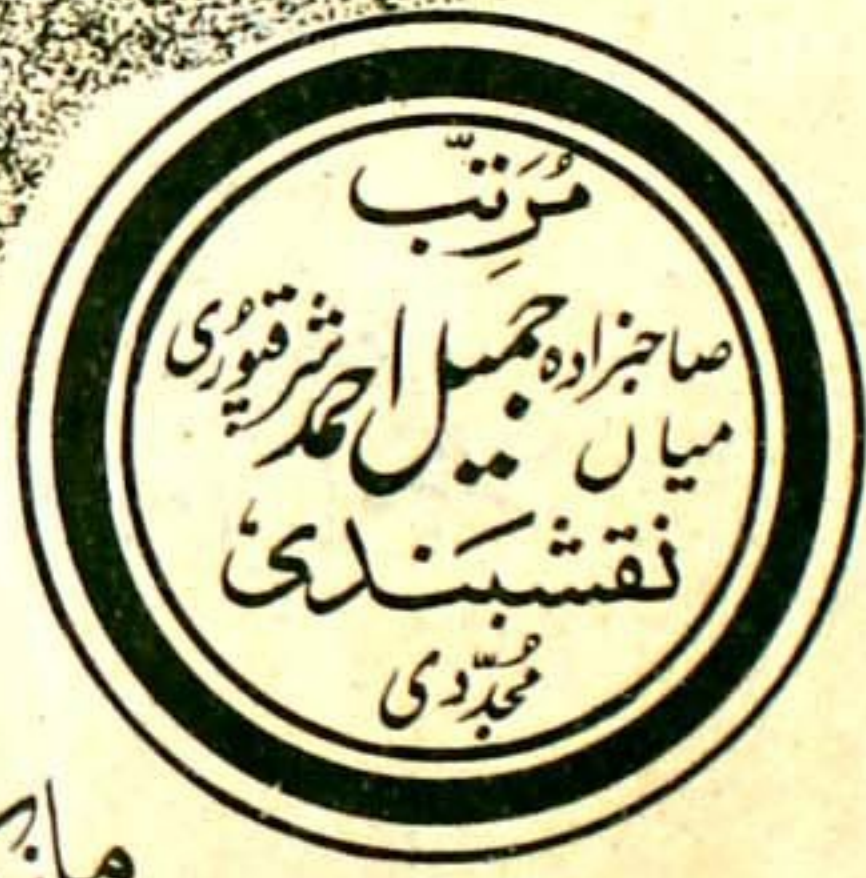 مُرَتِّب
صاحبزادہ میاں جمیل احمد شرقپوُری
نقشبَندی
مُجدّدی